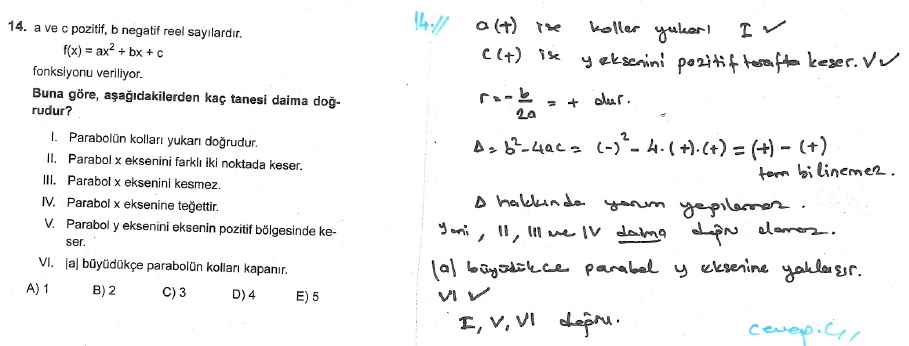 14. a ve c pozitif, b negatif reel sayılardır.
f(x) = ax² + bx + c
fonksiyonu veriliyor.
Buna göre, aşağıdakilerden kaç tanesi daima doğ-
rudur?
I. Parabolün kolları yukarı doğrudur.
II. Parabol x eksenini farklı iki noktada keser.
III. Parabol x eksenini kesmez.
IV. Parabol x eksenine teğettir.
V. Parabol y eksenini eksenin pozitif bölgesinde ke-
ser.
VI. |a| büyüdükçe parabolün kolları kapanır.
A) 1 B) 2 C) 3 D) 4 E) 5
14.// a(+) ise kollar yukarı I ✓
c(+) ise y eksenini pozitif tarafta keser. V ✓
r = -b/2a = + olur.
Δ = b² - 4ac = (-)² - 4.(+).(+) = (+) - (+)
tam bilinemez.
Δ hakkında yorum yapılamaz.
Yani, II, III ve IV daima doğru olamaz.
|a| büyüdükçe parabol y eksenine yaklaşır.
VI ✓
I, V, VI doğru.
cevap: C //